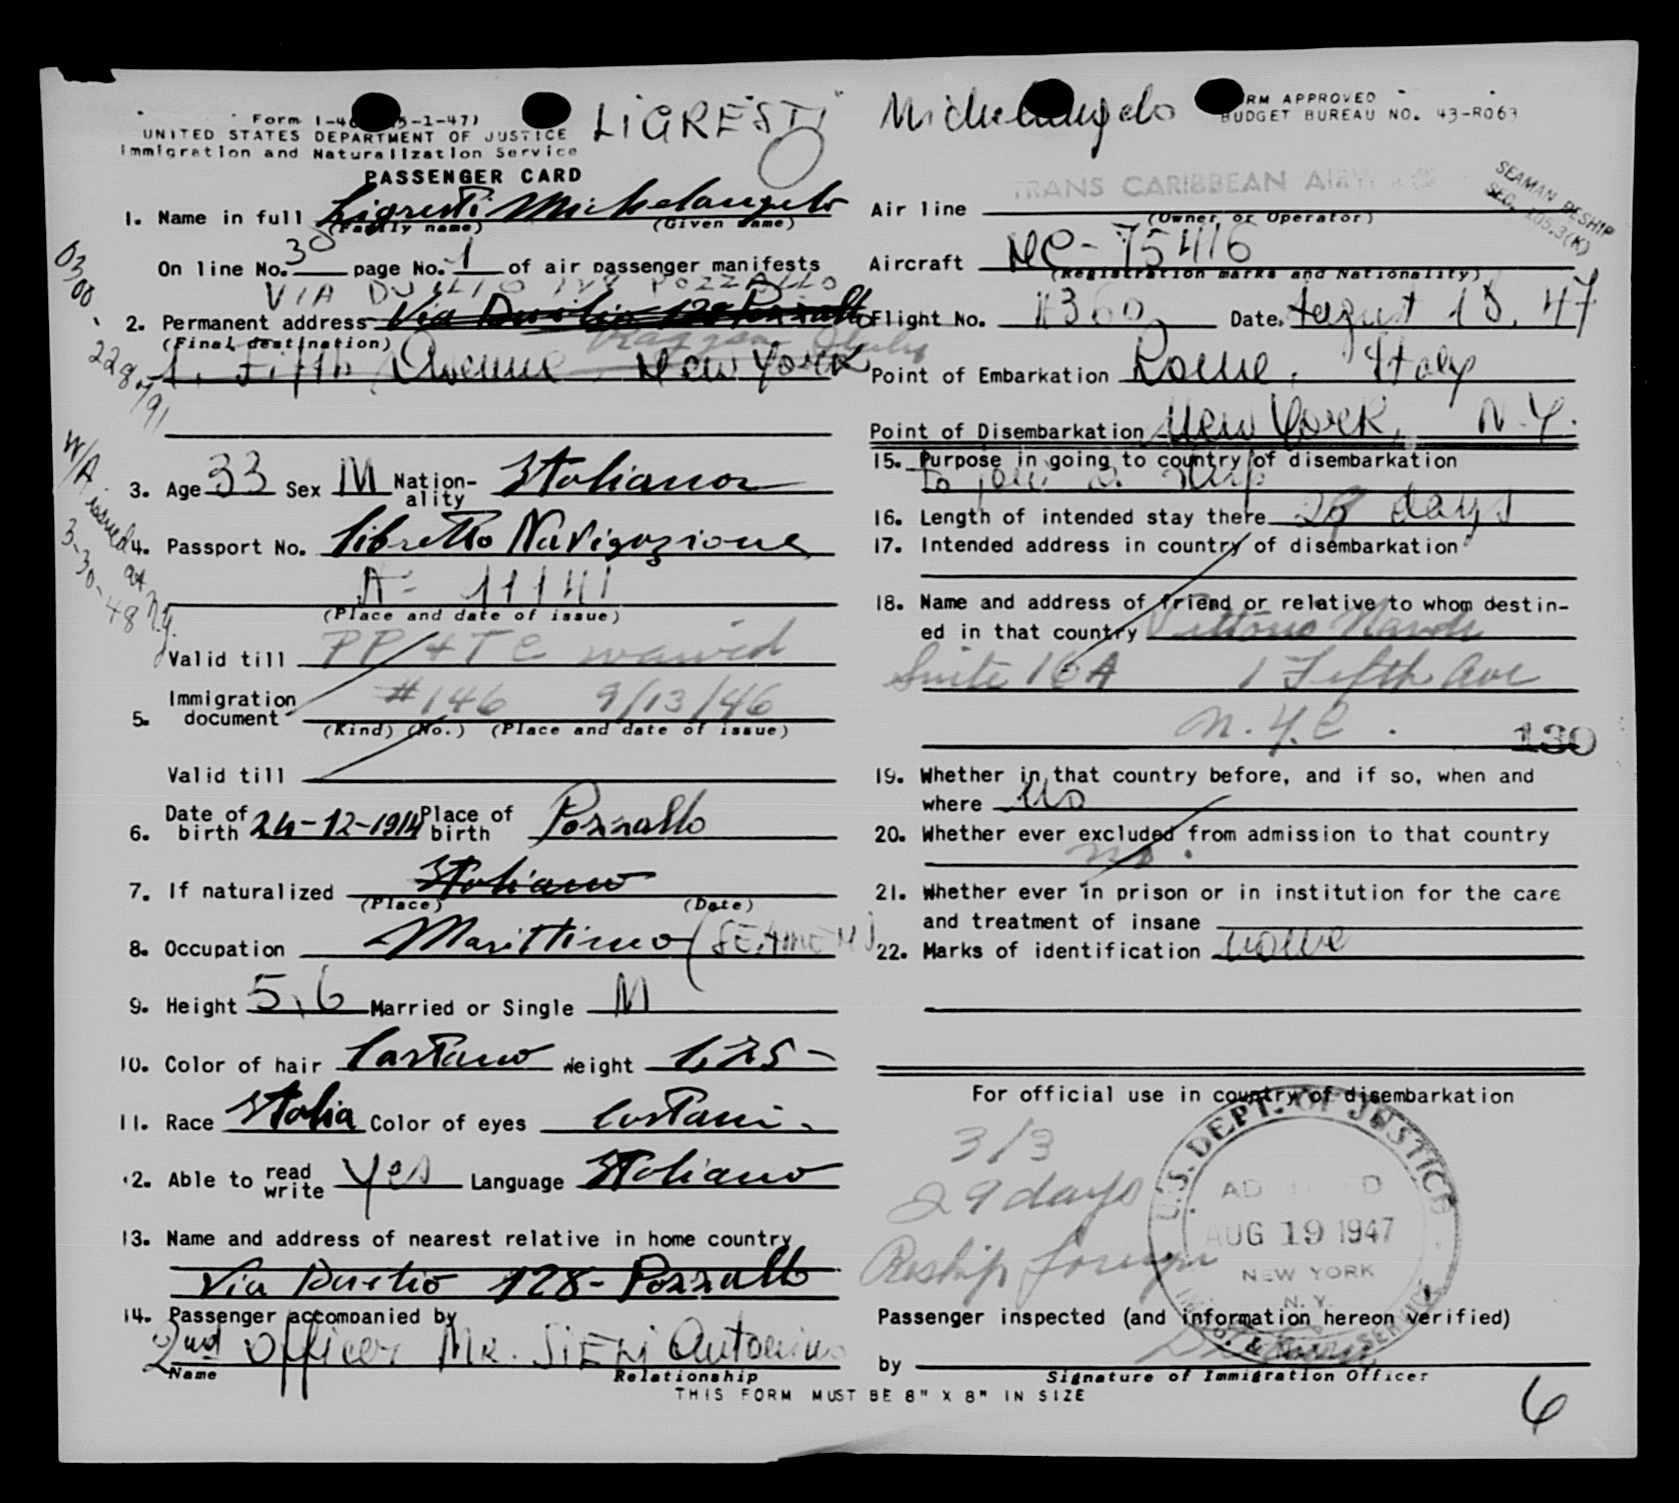 LIGRESTI Michelangelo
UNITED STATES DEPARTMENT OF JUSTICE
Immigration and Naturalization Service
PASSENGER CARD
1. Name in full Ligresti Michelangelo
(Family name) (Given name)
On line No. 30 page No. 1 of air passenger manifests
VIA DUILIO 128 POZZALLO
2. Permanent address Via Duilio 128 Pozzallo
(Final destination)
1. Fifth Avenue New York
3. Age 33 Sex M Nationality Italiana
4. Passport No. libretto Navigazione
A= 11141
(Place and date of issue)
Valid till PP & TC waived
5. Immigration document #146 9/13/46
(Kind) (No.) (Place and date of issue)
Valid till
6. Date of birth 24-12-1914 Place of birth Pozzallo
7. If naturalized Italiano
(Place) (Date)
8. Occupation Marittimo (SEAMEN)
9. Height 5,6 Married or Single M
10. Color of hair Castano Weight 125-
11. Race Italia Color of eyes Castani
12. Able to read write Yes Language Italiano
13. Name and address of nearest relative in home country
Via Duilio 128- Pozzallo
14. Passenger accompanied by
2nd Officer Mr. Antonino
Name Relationship
THIS FORM MUST BE 8" X 8" IN SIZE
0300-
W/A issued at N.Y.
3-30-48
FORM APPROVED
BUDGET BUREAU NO. 43-R063
TRANS CARIBBEAN
SEAMAN RESHIP
SEC. 105.3(K)
Air line
(Owner or Operator)
Aircraft NC-75416
(Registration marks and Nationality)
Flight No. #360 Date. August 18. 47
Point of Embarkation Rome, Italy
Point of Disembarkation New York, N.Y.
15. Purpose in going to country of disembarkation
to join a ship
16. Length of intended stay there 29 days
17. Intended address in country of disembarkation
18. Name and address of friend or relative to whom destin-
ed in that country Vittorio
Suite 16A 1 Fifth Ave
N.Y.C.
130
19. Whether in that country before, and if so, when and
where No
20. Whether ever excluded from admission to that country
no.
21. Whether ever in prison or in institution for the care
and treatment of insane
22. Marks of identification none
For official use in country of disembarkation
3/3
29 days
Reship foreign
U.S. DEPT. OF JUSTICE
ADMITTED
AUG 19 1947
NEW YORK
N.Y.
Passenger inspected (and information hereon verified)
by
Signature of Immigration Officer
6